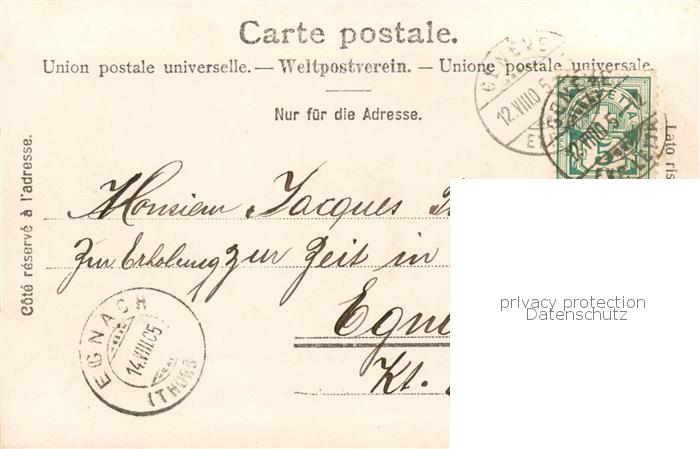 Carte postale.
Union postale universelle. — Weltpostverein. — Unione postale universale.
Nur für die Adresse.
Côté réservé à l'adresse.
Lato ris
GENÈVE
12.VIII05
GENÈVE
12.VIII05
HELVETIA
5
Monsieur Jacques
Zur Erholung zur Zeit in
Egn
Kt.
EGNACH
14.VIII05
(THURG
privacy protection
Datenschutz